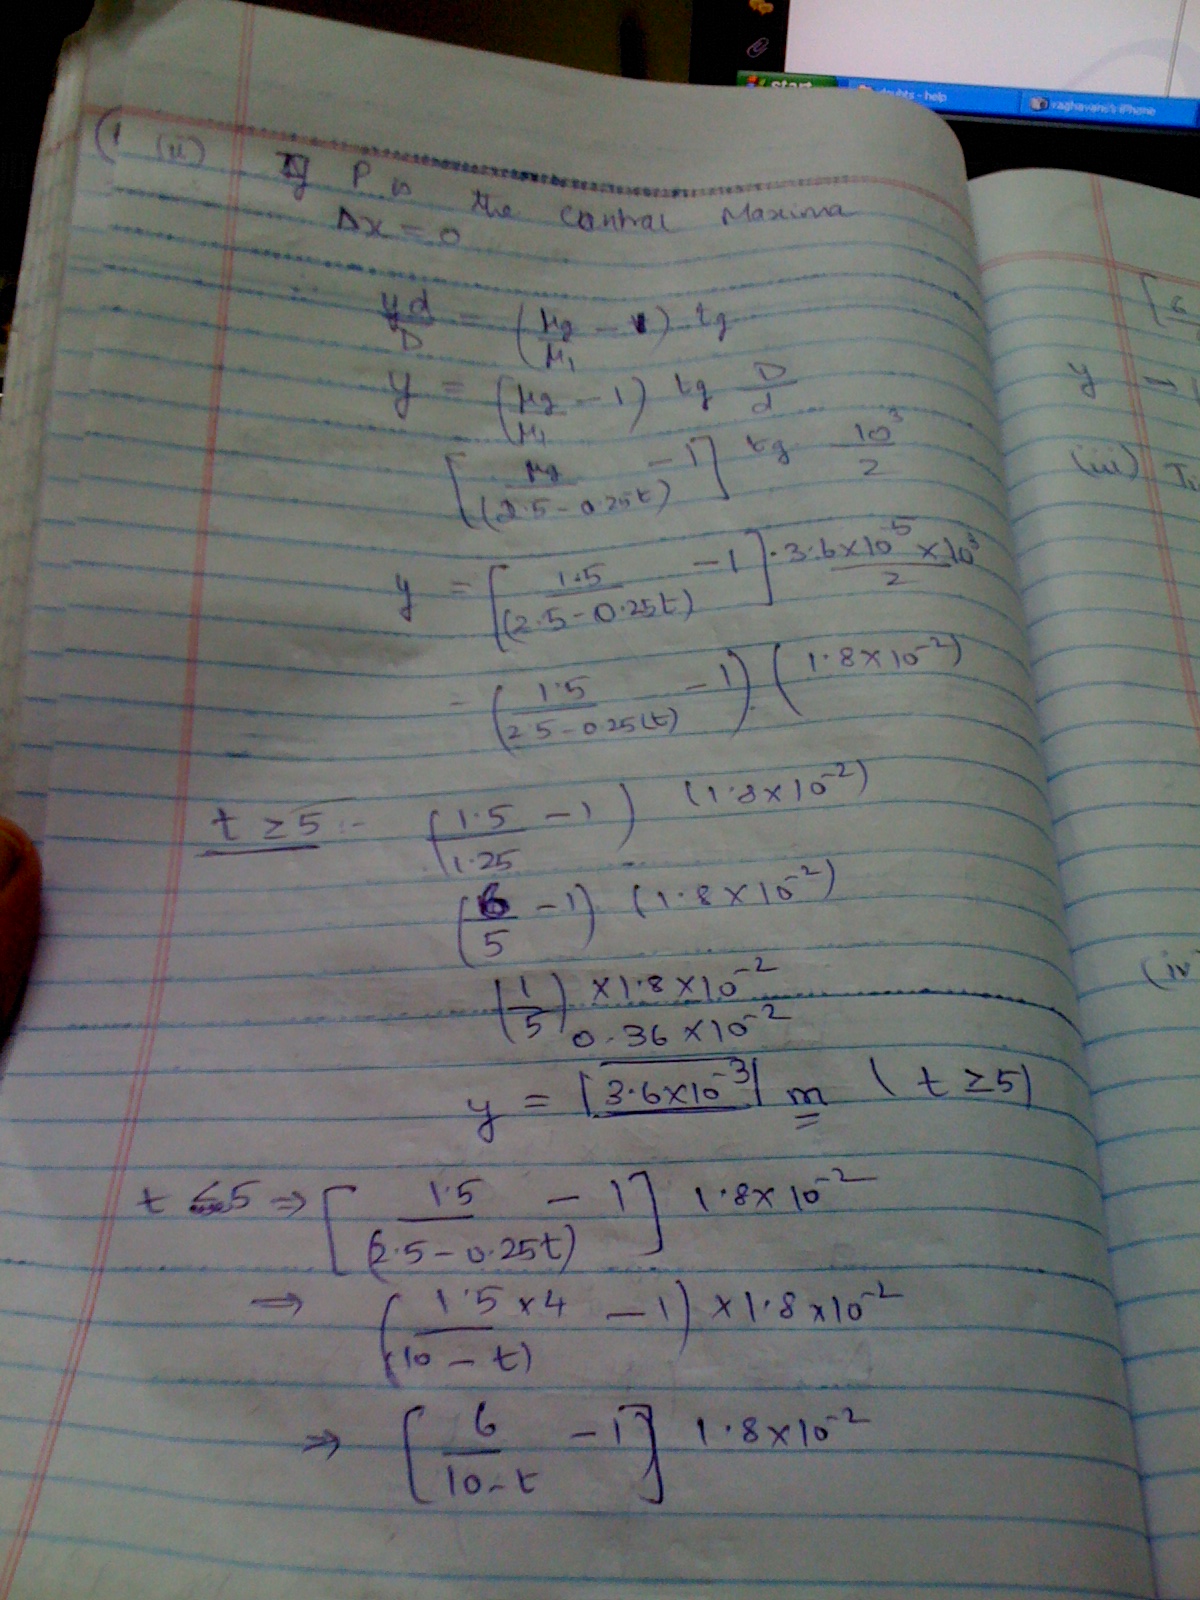 start
doubts - help
raghavans's iPhone
(1 (ii) If P is the Central Maxima
Δx = 0
yd/D = (μg/μ1 - 1) tg
y = (μg/μ1 - 1) tg D/d
[μg/(2.5 - 0.25t) - 1] tg 10³/2
y = [1.5/(2.5 - 0.25t) - 1] · 3.6×10⁻⁵ × 10³/2
= (1.5/(2.5 - 0.25(t)) - 1) · (1.8×10⁻²)
t ≥ 5 :- (1.5/1.25 - 1) (1.8×10⁻²)
(6/5 - 1) (1.8×10⁻²)
(1/5) ×1.8×10⁻²
0.36×10⁻²
y = |3.6×10⁻³| m (t ≥ 5)
t ≤ 5 ⇒ [1.5/(2.5 - 0.25t) - 1] 1.8×10⁻²
⇒ (1.5×4/(10 - t) - 1) ×1.8×10⁻²
⇒ [6/10-t - 1] 1.8×10⁻²
[6
y
(iii)
(iv)